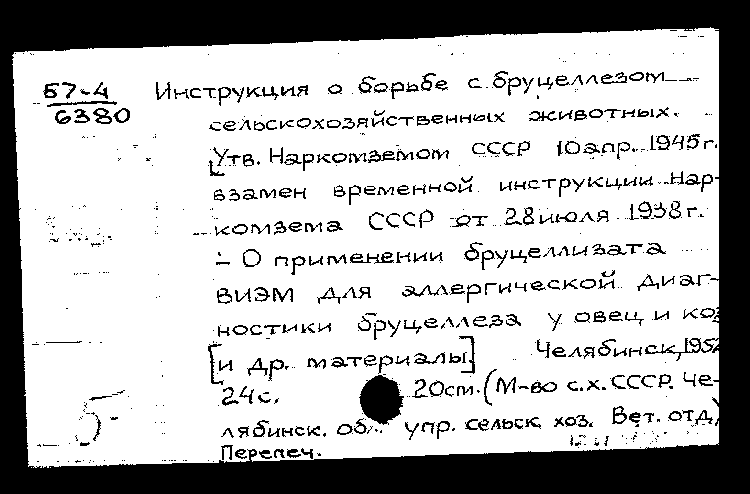 57-4 Инструкция о борьбе с бруцеллезом
6380 сельскохозяйственных животных.
Утв. Наркомземом СССР 10 апр. 1945 г.
взамен временной инструкции Нар-
комзема СССР от 28 июля 1938 г.
- О применении бруцеллизата
ВИЭМ для аллергической диаг-
ностики бруцеллеза у овец и коз
[и др. материалы] Челябинск, 1952
24 с. 20 см. (М-во с.х. СССР. Че-
лябинск. обл. упр. сельск. хоз. Вет. отд.)
Перепеч.
5-